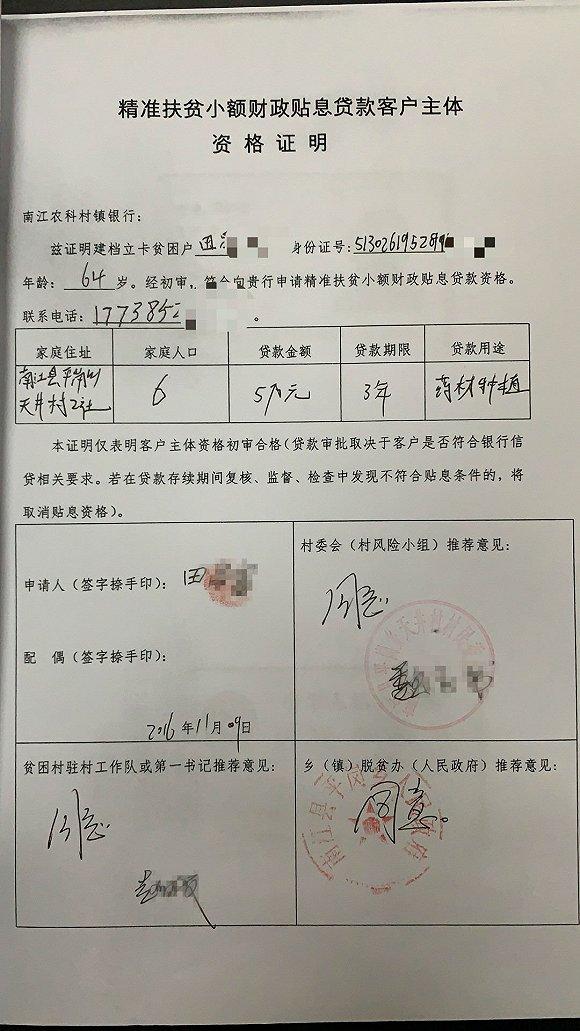 精准扶贫小额财政贴息贷款客户主体
资格证明
南江农科村镇银行：
兹证明建档立卡贫困户 田 身份证号：5130261952
年龄：64岁。经初审，符合向贵行申请精准扶贫小额财政贴息贷款资格。
联系电话：177385 。
家庭住址 家庭人口 贷款金额 贷款期限 贷款用途
南江县平岗乡天井村2社 6 5万元 3年 药材种植
本证明仅表明客户主体资格初审合格（贷款审批取决于客户是否符合银行信
贷相关要求。若在贷款存续期间复核、监督、检查中发现不符合贴息条件的，将
取消贴息资格）。
申请人（签字捺手印）： 田
配 偶（签字捺手印）：
2016年11月09日
村委会（村风险小组）推荐意见：
同意
贫困村驻村工作队或第一书记推荐意见：
同意
乡（镇）脱贫办（人民政府）推荐意见：
同意。
南江县平岗乡人民政府